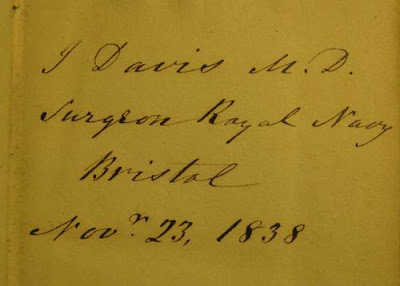 J Davis M.D.
Surgeon Royal Navy
Bristol
Novr. 23, 1838